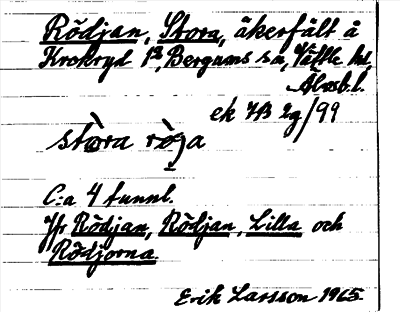 Rödjan, Stora, åkerfält å
Krokryd 1², Bergums sn, Vättle hd,
Älvsb. l.
ek 7B 2g/99
stòra rö̀ja
C:a 4 tunnl.
Jfr Rödjan, Rödjan, Lilla och
Rödjorna.
Erik Larsson 1965.